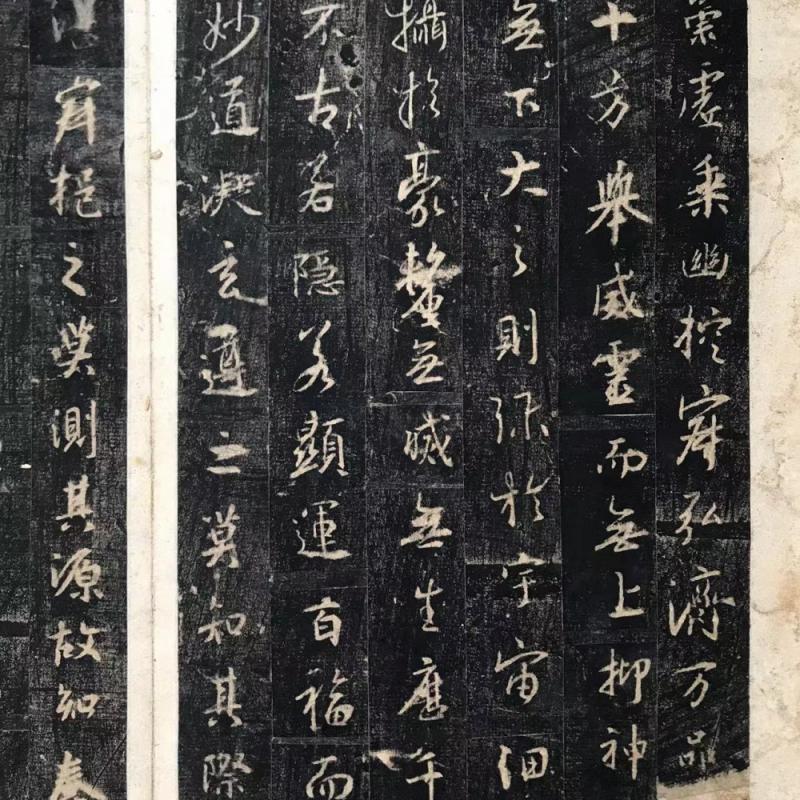 崇虛乘幽控寂弘濟万品
十方舉威靈而無上抑神
無下大之則弥於宇宙細
攝於豪釐無滅無生歷千
不古若隱若顯運百福而
妙道凝玄遵之莫知其際
流寂挹之莫測其源故知蠢